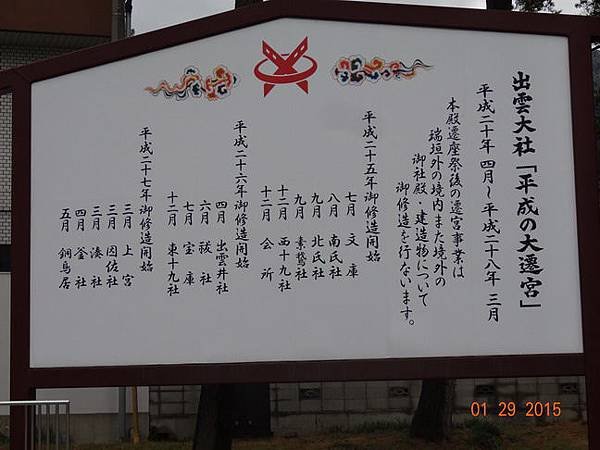 出雲大社「平成の大遷宮」
平成二十年 四月〜平成二十八年 三月
本殿遷座祭後の遷宮事業は
瑞垣外の境内また境外の
御社殿・建造物について
御修造を行ないます。
平成二十五年御修造開始
七月 文庫
八月 南氏社
九月 北氏社
九月 素鵞社
十二月 西十九社
十二月 会所
平成二十六年御修造開始
四月 出雲井社
六月 祓社
七月 宝庫
十二月 東十九社
平成二十七年御修造開始
三月 上宮
三月 因佐社
三月 湊社
四月 釜社
五月 銅鳥居
01 29 2015